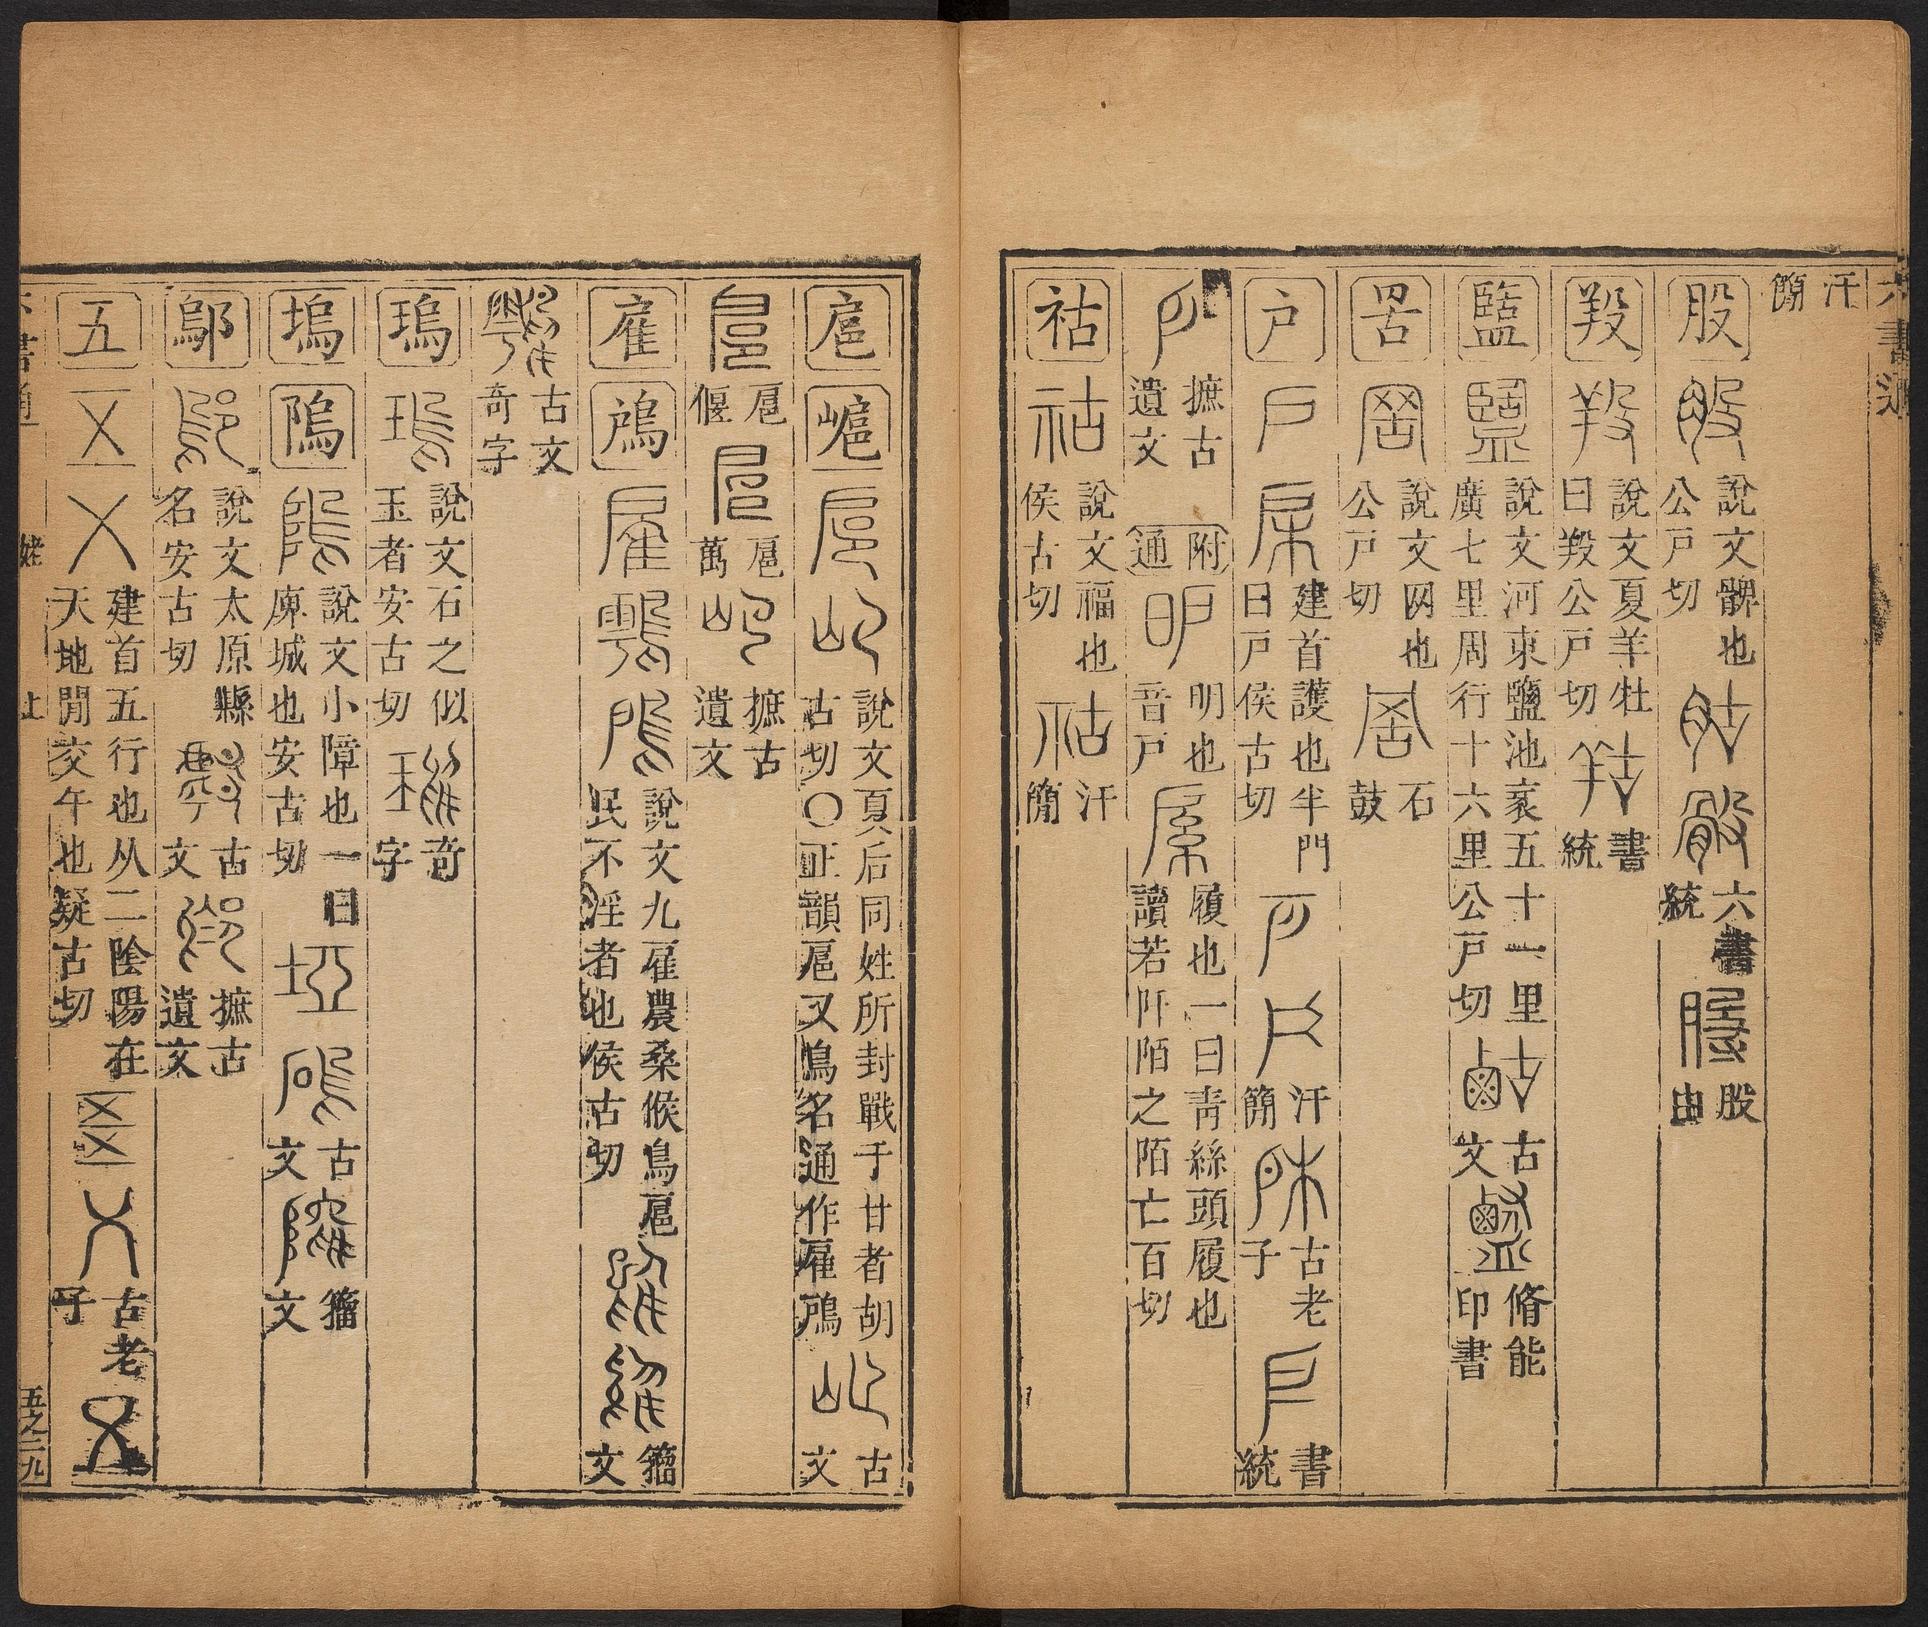 六書通
汗簡
股 說文髀也公戶切 六書統 股由
羖 說文夏羊牡曰羖公戶切 書統
盬 說文河東鹽池袤五十一里廣七里周行十六里公戶切 古文 脩能印書
罟 說文网也公戶切 石鼓
户 建首護也半門曰戶侯古切 汗簡 古老子 書統
摭古遺文 附通 明也音戶 履也一曰青絲頭履也讀若阡陌之陌亡百切
祜 說文福也侯古切 汗簡
扈 㠅 說文夏后同姓所封戰于甘者胡古切〇正韻扈又鳥名通作雇鳸 古文
扈偃 扈萬 摭古遺文
雇 鳸 說文九雇農桑候鳥扈民不淫者也侯古切 籀文
古文奇字
瑦 說文石之似玉者安古切 奇字
塢 隖 說文小障也一曰庳城也安古切 古文 籀文
鄔 說文太原縣名安古切 古文 摭古遺文
五 建首五行也从二陰陽在天地閒交午也疑古切 古老子
六書通 姥 上 五之二九